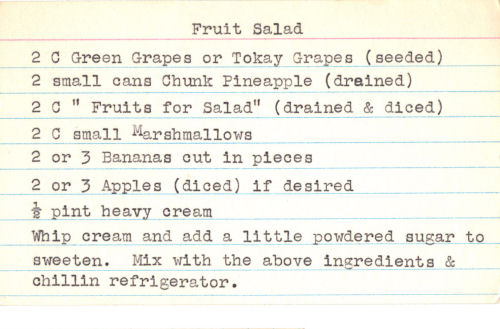 Fruit Salad
2 C Green Grapes or Tokay Grapes (seeded)
2 small cans Chunk Pineapple (drained)
2 C " Fruits for Salad" (drained & diced)
2 C small Marshmallows
2 or 3 Bananas cut in pieces
2 or 3 Apples (diced) if desired
½ pint heavy cream
Whip cream and add a little powdered sugar to
sweeten. Mix with the above ingredients &
chillin refrigerator.